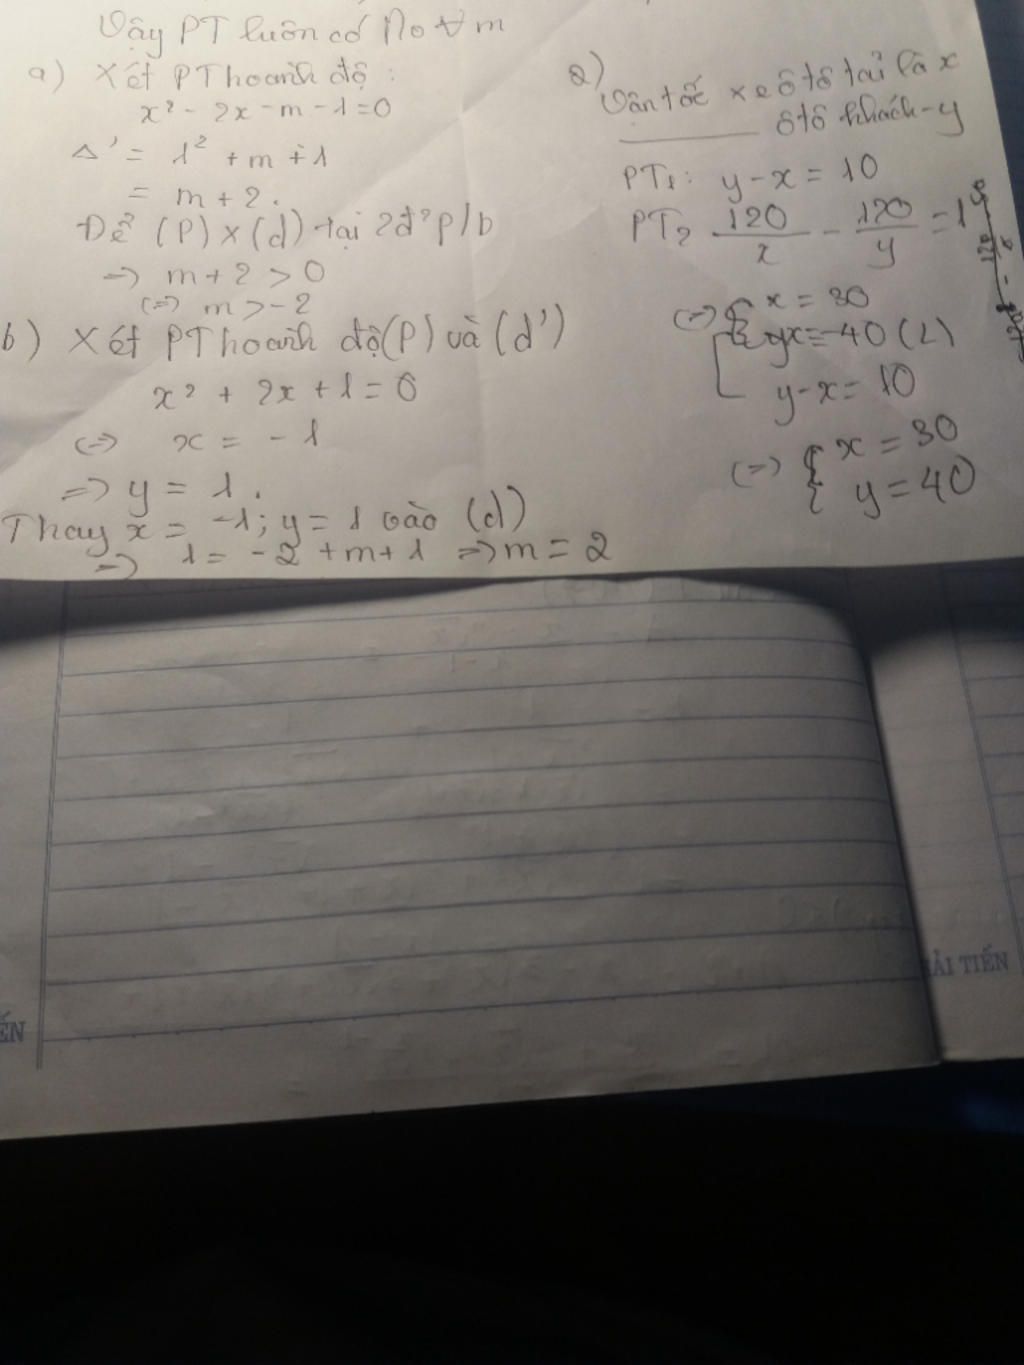 Vậy PT luôn có No ∀ m
a) Xét PT hoành độ :
x² - 2x - m - 1 = 0
Δ' = 1² + m + 1
= m + 2.
Để (P) x (d) tại 2 đ² p/b
=> m + 2 > 0
(=) m > -2
b) Xét PT hoành độ (P) và (d')
x² + 2x + 1 = 0
(=) x = - 1
=> y = 1.
Thay x = -1; y = 1 vào (d)
=> 1 = -2 + m + 1 => m = 2
2)
Vận tốc xe ôtô tải là x
ôtô khách - y
PT1: y - x = 10
PT2 120/x - 120/y = 1
(=) x = 30
x = -40 (L)
y - x = 10
(=) { x = 30
y = 40
ẢI TIẾN
ẾN